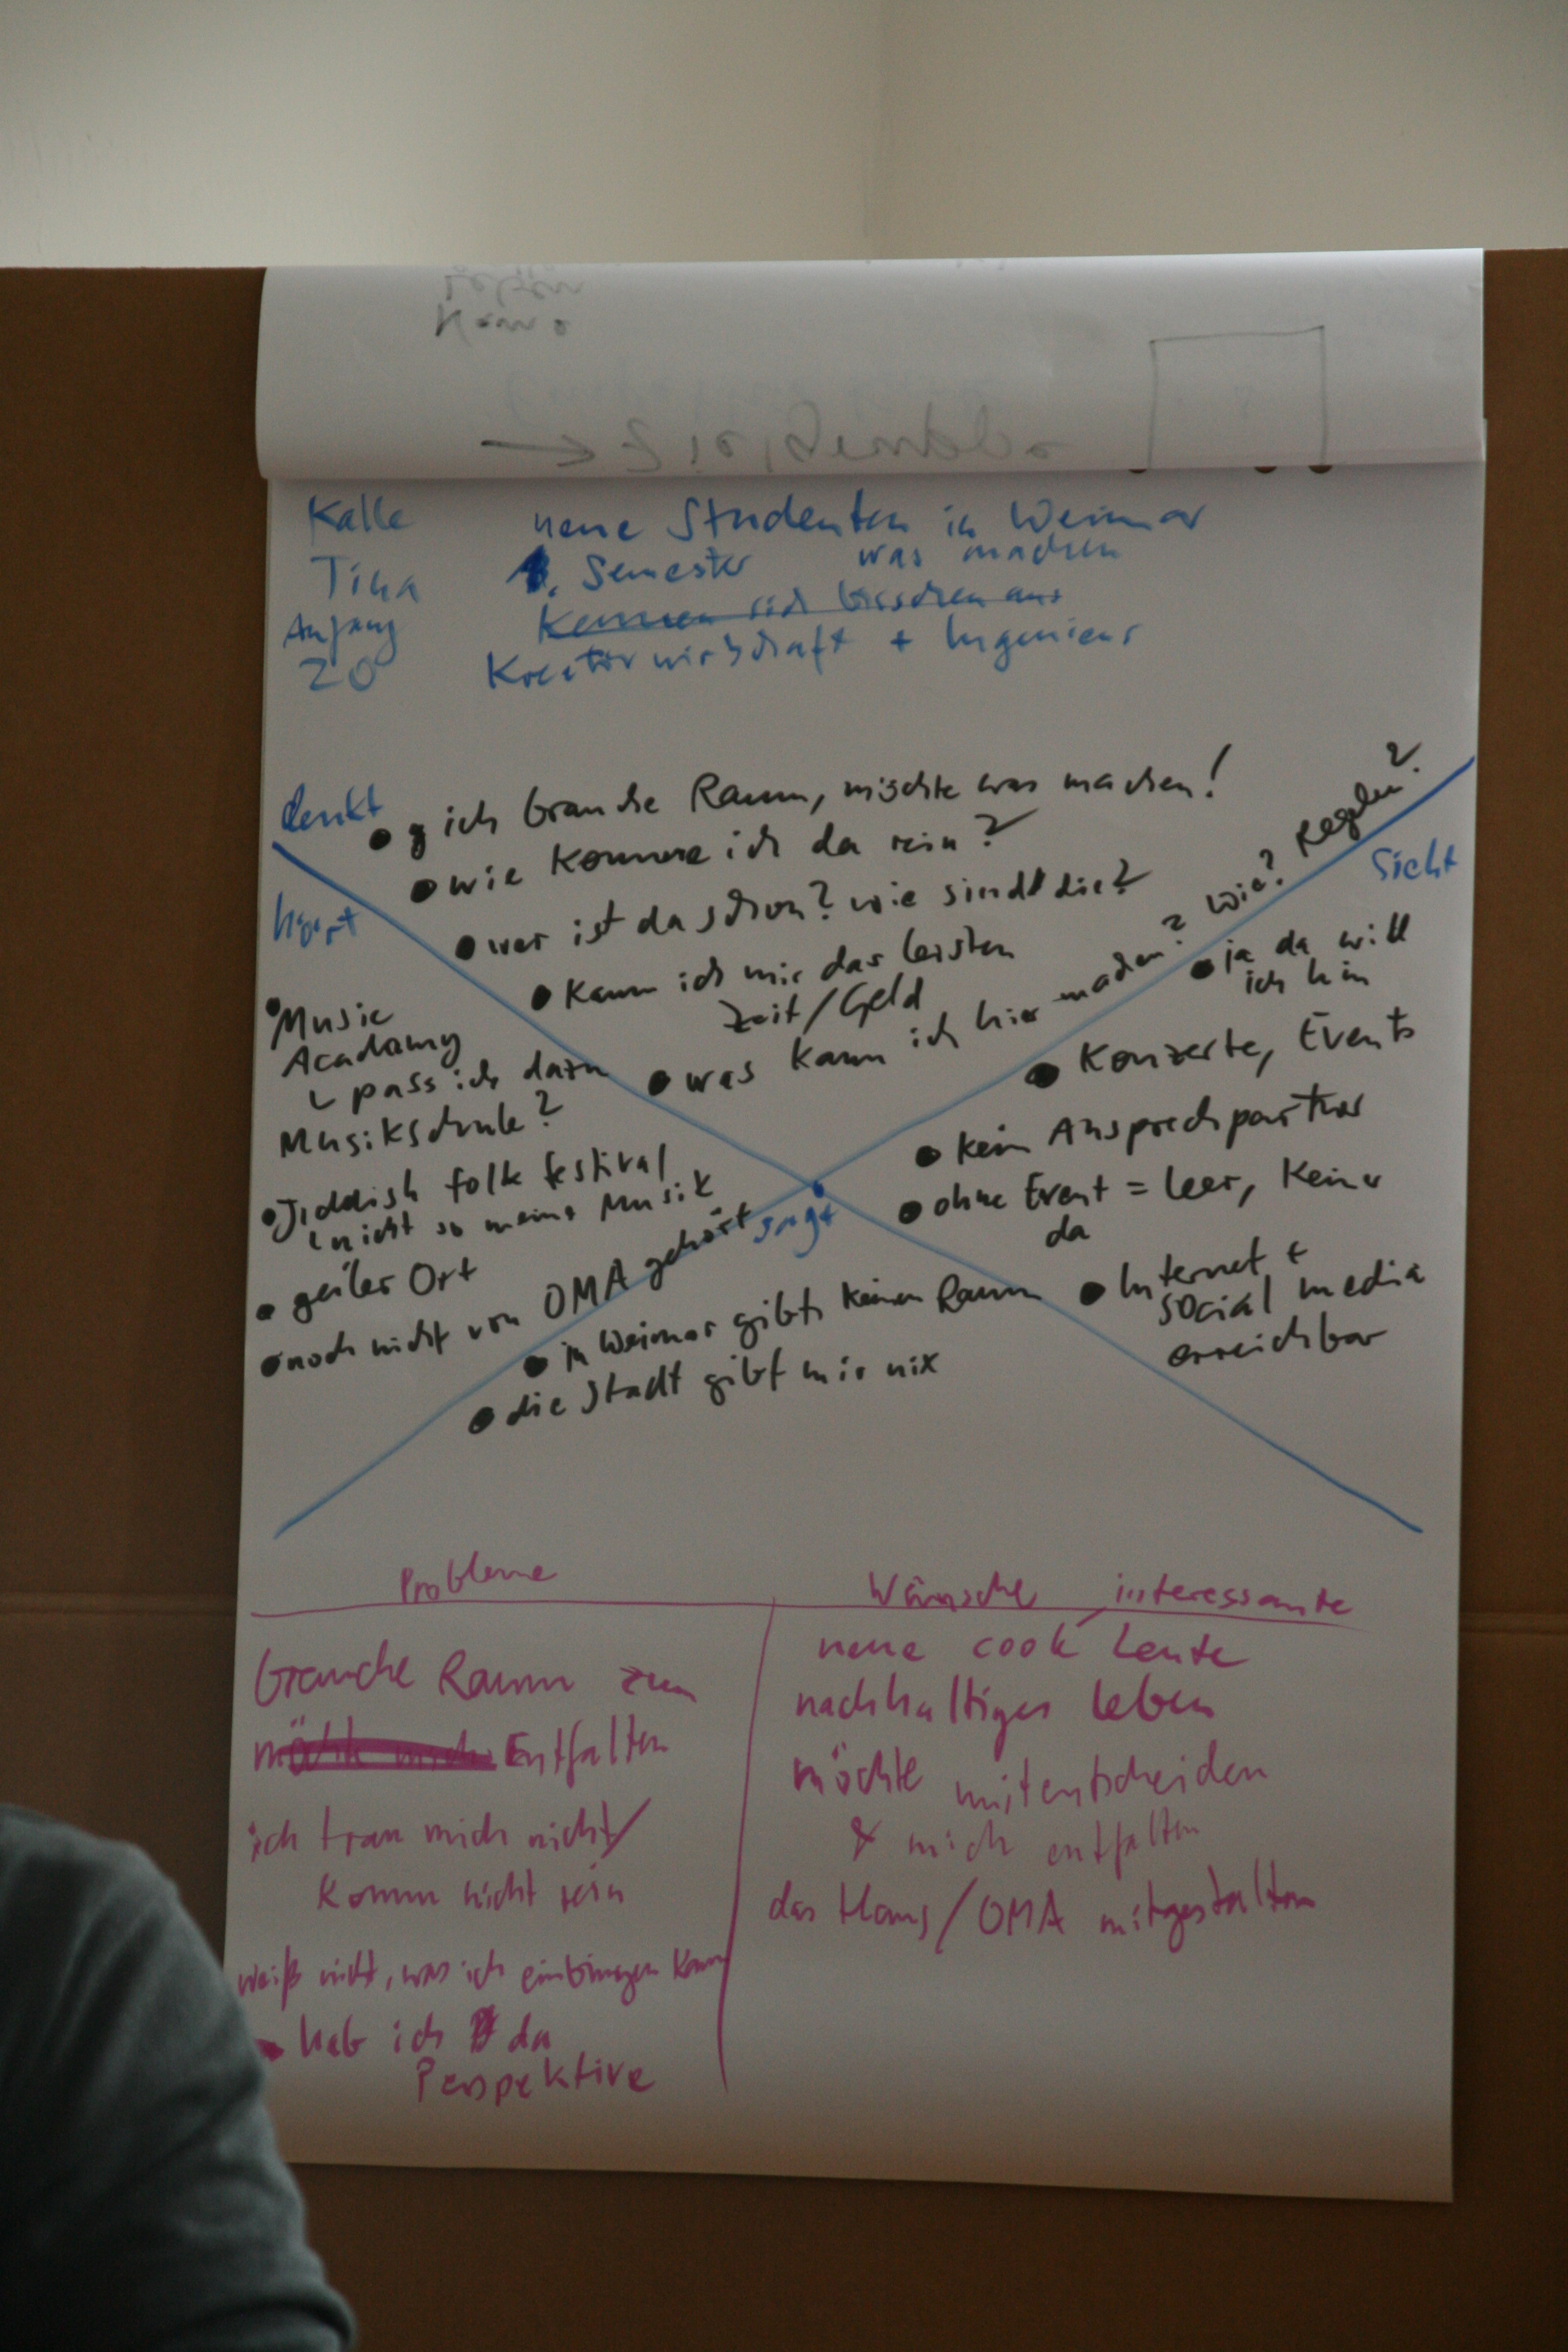 Kalle
Tina
Anfang
20
neue Studenten in Weimar
1. Semester was machen
Kennen sich bisschen aus
Kreativwirtschaft + Ingenieur
denkt
• ich brauche Raum, möchte was machen!
• wie komme ich da rein?
• wer ist da schon? wie sind die?
• kann ich mir das leisten
Zeit/Geld
• was kann ich hier machen? wie? Regeln?
hört
• Music
Academy
pass ich dazu
Musikschule?
• Jiddish folk festival
nicht so meine Musik
• geiler Ort
• noch nicht von OMA gehört
sieht
• ja da will
ich hin
• Konzerte, Events
• kein Ansprechpartner
• ohne Event = leer, Keiner
da
• Internet +
social media
erreichbar
sagt
• in Weimar gibts keinen Raum
• die Stadt gibt mir nix
Probleme
brauche Raum zum
Entfalten
ich trau mich nicht/
komm nicht rein
weiß nicht, was ich einbringen kann
- hab ich da
Perspektive
Wünsche interessante
neue coole Leute
nachhaltiges leben
möchte mitentscheiden
& mich entfalten
das Haus/OMA mitgestalten